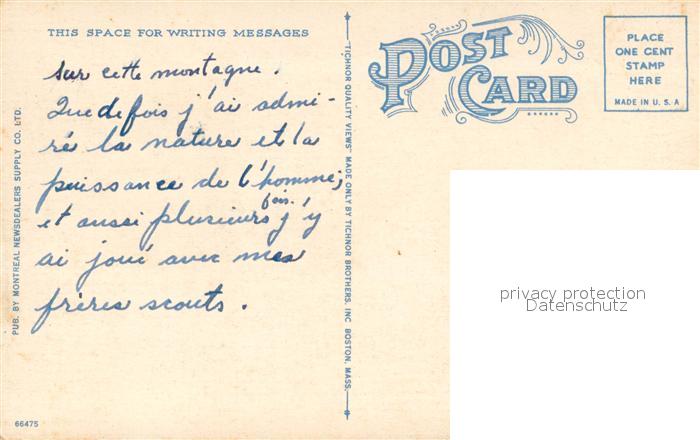 THIS SPACE FOR WRITING MESSAGES
sur cette montagne.
Que de fois j'ai admi-
ré la nature et la
puissance de l'homme;
et aussi plusieurs fois j'y
ai joué avec mes
frères scouts.
PUB. BY MONTREAL NEWSDEALERS SUPPLY CO. LTD.
66475
"TICHNOR QUALITY VIEWS" MADE ONLY BY TICHNOR BROTHERS, INC. BOSTON, MASS.
POST CARD
PLACE
ONE CENT
STAMP
HERE
MADE IN U.S.A
privacy protection
Datenschutz